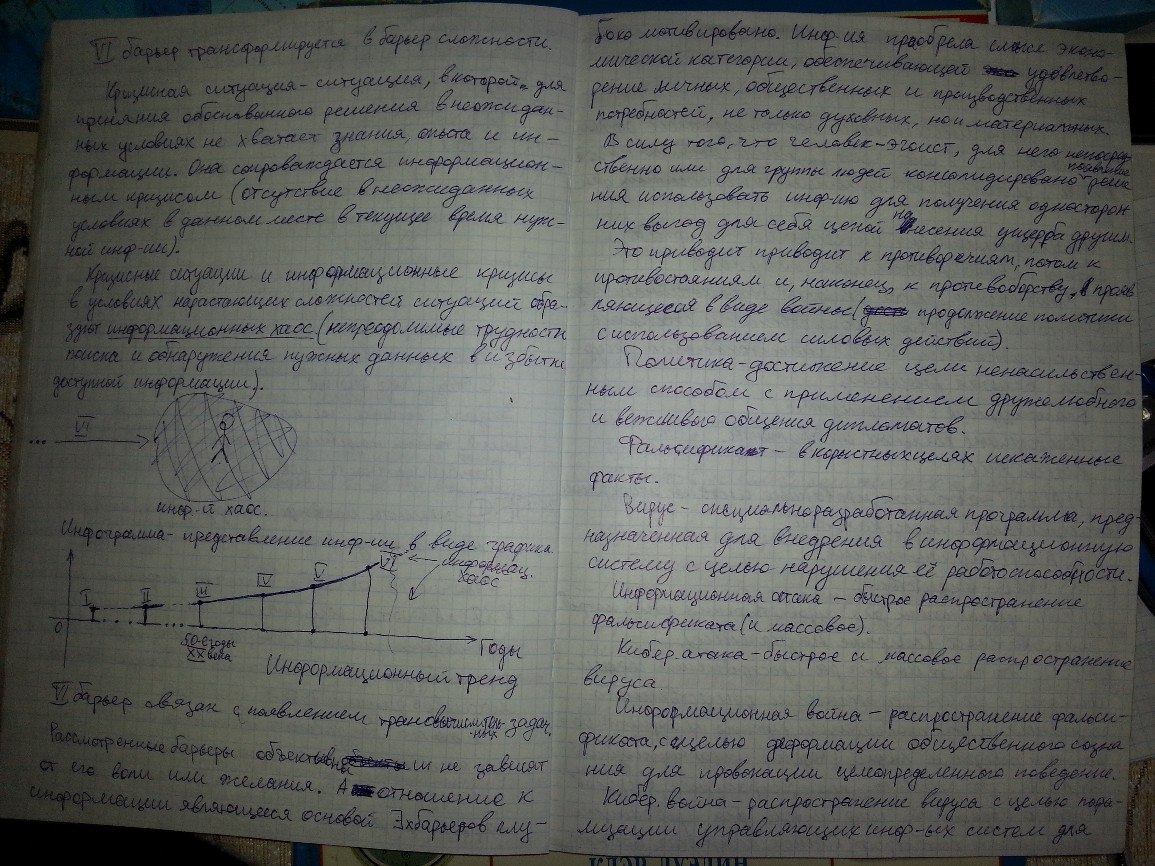 VI барьер трансформируется в барьер сложности.
Кризисная ситуация - ситуация, в которой для
приняния обоснованного решения в неожидан-
ных условиях не хватает знания, опыта и ин-
формации. Она сопровождается информацион-
ным кризисом (отсутствие в неожиданных
условиях в данном месте в текущее время нуж-
ной инф-ии).
Кризисные ситуации и информационные кризисы
в условиях нарастающих сложностей ситуаций обра-
зуют информационных хаос (непреодолимые трудности
поиска и обнаружения нужных данных в избытке
доступной информации).
... VI
инф-й хаос.
Инфограмма - представление инф-ии в виде графика
I II III IV V VI
информац.
хаос
0
50-е годы
XX века
Годы
Информационный тренд
VI барьер связан с появлением трансвычислитель-
ных задач.
Рассмотренные барьеры объективны и не зависят
от его воли или желания. А отношение к
информации являющееся основой барьеров глу-
боко мотивировано. Инф-ия приобрела смысл эконо-
мической категории, обеспечивающей удовлетво-
рение личных, общественных и производственных
потребностей, не только духовных, но и материальных.
В силу того, что человек-эгоист, для него непосред-
ственно или для группы людей консолидировано
ния использовать инф-ию для получения односторон
них выгод для себя ценой нанесения ущерба другим.
Это приводит приводит к противоречиям, потом к
противостояниям и, наконец, к противоборству, прояв
ляющееся в виде войны (продолжение политики
с использованием силовых действий).
Политика - достижение цели ненасильствен-
ным способом с применением дружелюбного
и вежливого общения дипломатов.
Фальсификат - в корыстных целях искаженные
факты.
Вирус - специально разработанная программа, пред-
назначенная для внедрения в информационную
систему с целью нарушения её работоспособности.
Информационная атака - быстрое распространение
фальсификата (и массовое).
Кибер. атака - быстрое и массовое распространение
вируса.
Информационная война - распространение фальси-
фиката, с целью деформации общественного созна
ния для провокации целеопределенного поведение.
Кибер. война - распространение вируса с целью пара-
лизации управляющих инф-ых систем для